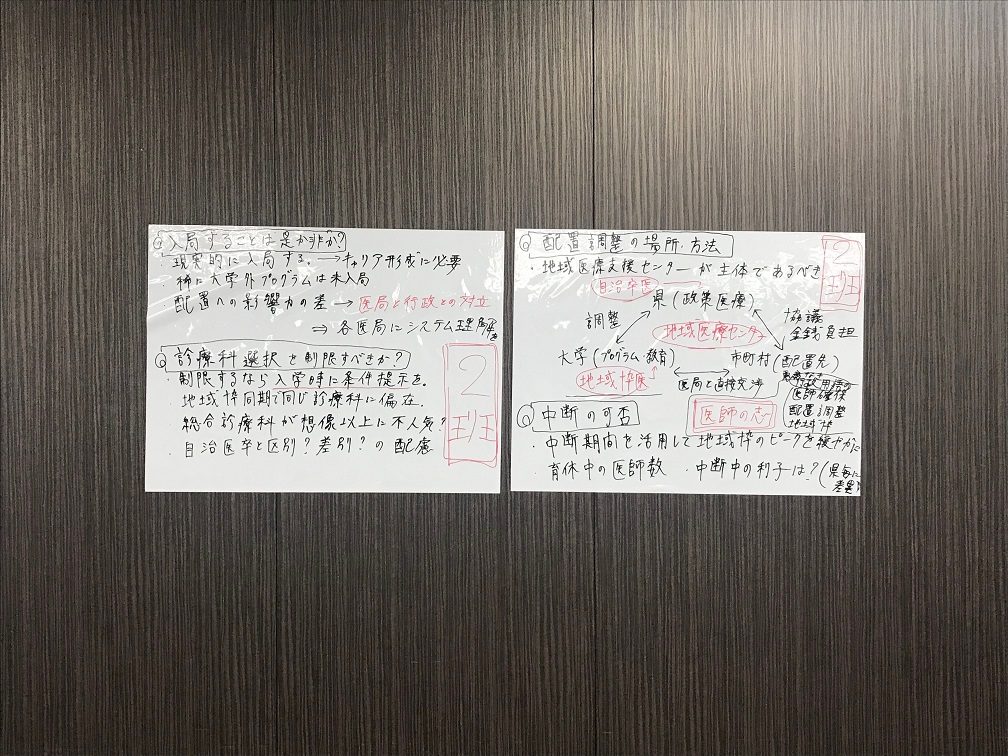 Q 入局することは是か非か?
現実的に入局する。→キャリア形成に必要
・稀に大学外プログラムは未入局
配置への影響力の差 → 医局と行政との対立
⇒ 各医局にシステム理解を
Q 診療科選択を制限すべきか?
・制限するなら入学時に条件提示を。
・地域枠同期で同じ診療科に偏在。
・総合診療科が想像以上に不人気?
・自治医卒と区別?差別?の配慮
2班
Q 配置調整の場所・方法
2班
・地域医療支援センターが主体であるべき
自治卒医
県(政策医療)
調整
地域医療センター
協議
金銭負担
大学(プログラム・教育)
市町村(配置先)
地域枠医
医局と直接交渉
医師確保
配置調整
地域枠
医師の志
Q 中断の可否
・中断期間を活用して地域枠のピークを緩やかに
・育休中の医師数
・中断中の利子は?(県毎に差異)